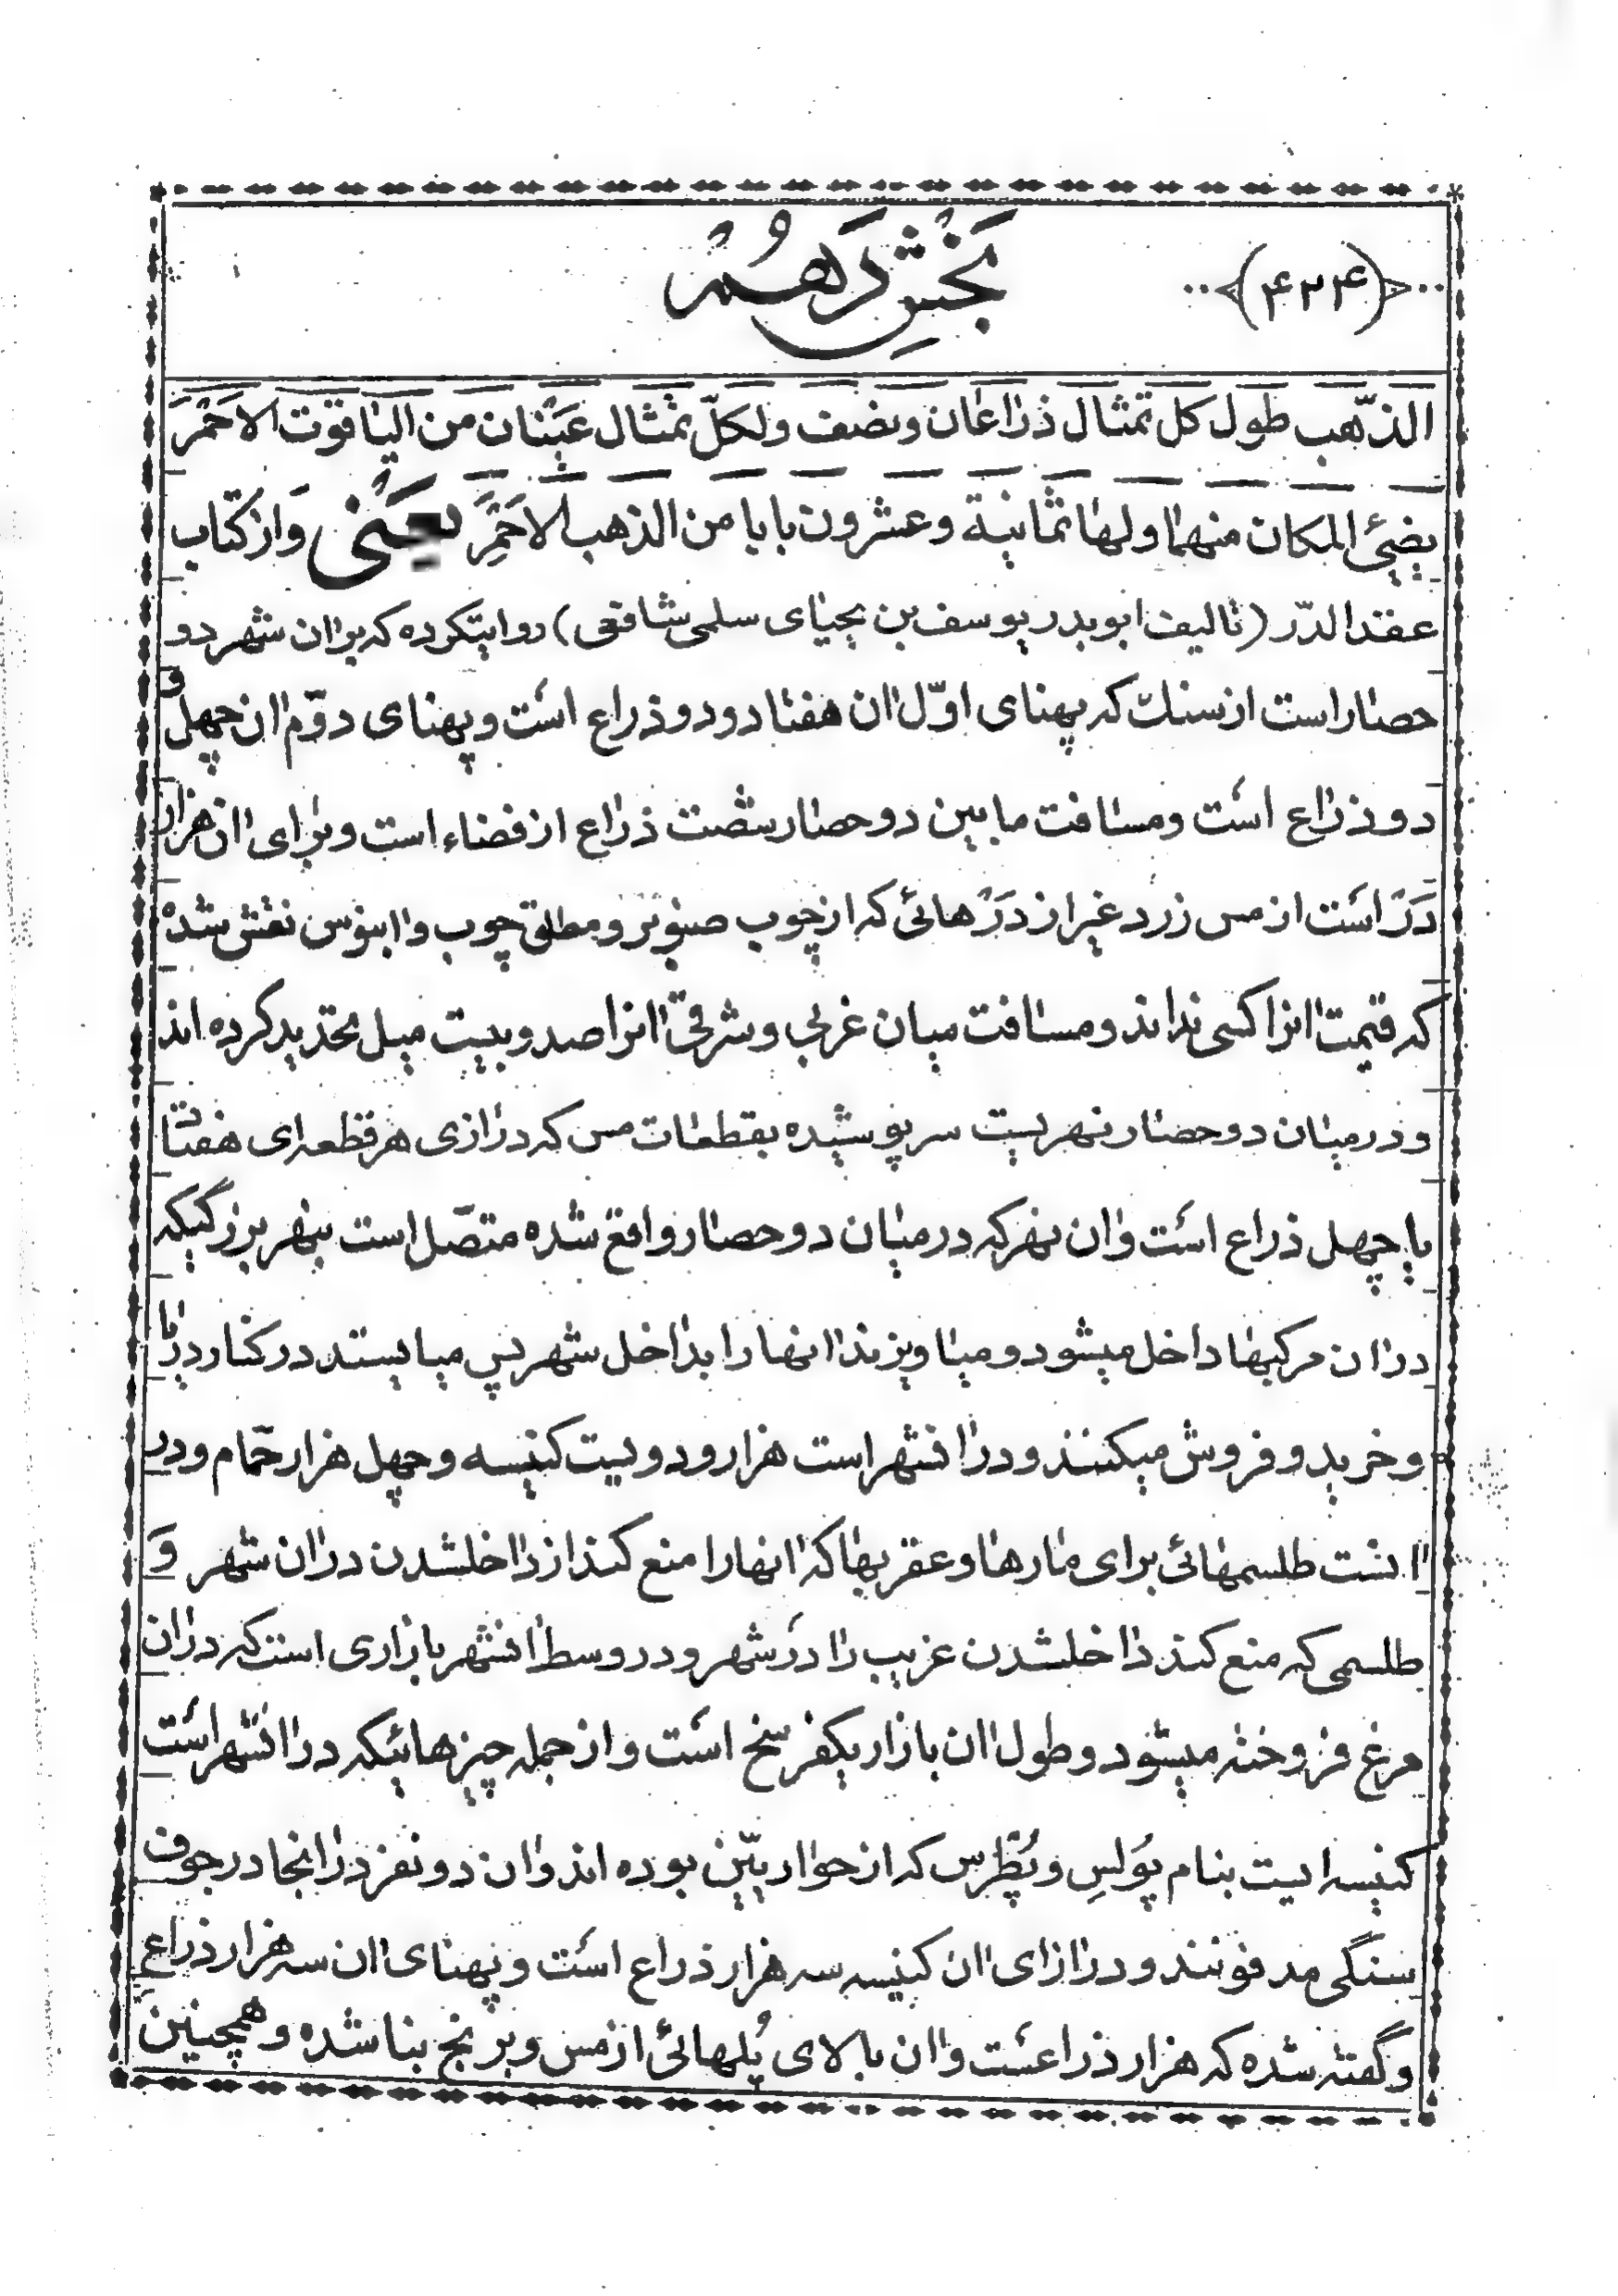 ﴿۴۳۴﴾ بَخْشِ دَهُمْ
الذّهب طول کل تمثال ذراعان ونصف ولکلّ تمثال عَیْنان من الیاقوت الاحْمَرَ
یضیئ المکان منهما ولها ثمانیة وعشرون بابا من الذهب الاحْمَرِ یَعْنی وَاز کتاب
عقد الدّرر (تالیف ابو بدر یوسف بن یحیای سلمی شافعی) روایتکرده که بران شهر دو
حصار است از سنك که پهنای اوّل ان هفتاد و دو ذراع است و پهنای دوّم ان چهل و
دو ذراع است ومسافت مابین دو حصار شصت ذراع از فضاء است وبرای ان هزار
دَرْ است از مس زرد غیر از دَرْهائی که از چوب صنوبر و مطلق چوب و ابنوس نقش شده
که قیمت انرا کسی نداند و مسافت میان غربی و شرقیّ انرا صد و بیست میل تحدید کرده اند
و در میان دو حصار نهریست سرپوشیده بقطعات مس که درازی هر قطعه ای هفتاد
یا چهل ذراع است وان نهر که در میان دو حصار واقع شده متصّل است بنهر بزرگیکه
دران مرکبها داخل میشود و میاویزند انها را بداخل شهر پس میایستد در کنار دریا
و خرید و فروش میکنند و در انشهر است هزار و دویست کنیسه و چهل هزار حمّام و در
انست طلسمهائی برای مارها و عقربها که انها را منع کند از داخلشدن دران شهر وَ
طلسمی که منع کند داخلشدن غریب را در شهر و در وسط انشهر بازاری است که دران
مرغ فروخته میشود و طول ان بازار یکفرسخ است و از جمله چیزهائیکه در انشهر است
کنیسه ایست بنام پُولِس و پُطْرُس که از حواریّین بوده اند وان دو نفر در انجا در جوف
سنگی مدفونند و درازای ان کنیسه سه هزار ذراع است و پهنای ان سه هزار ذراع
و گفته شده که هزار ذراعست و ان بالای پُلهائی از مس و برنج بنا شده و همچنین